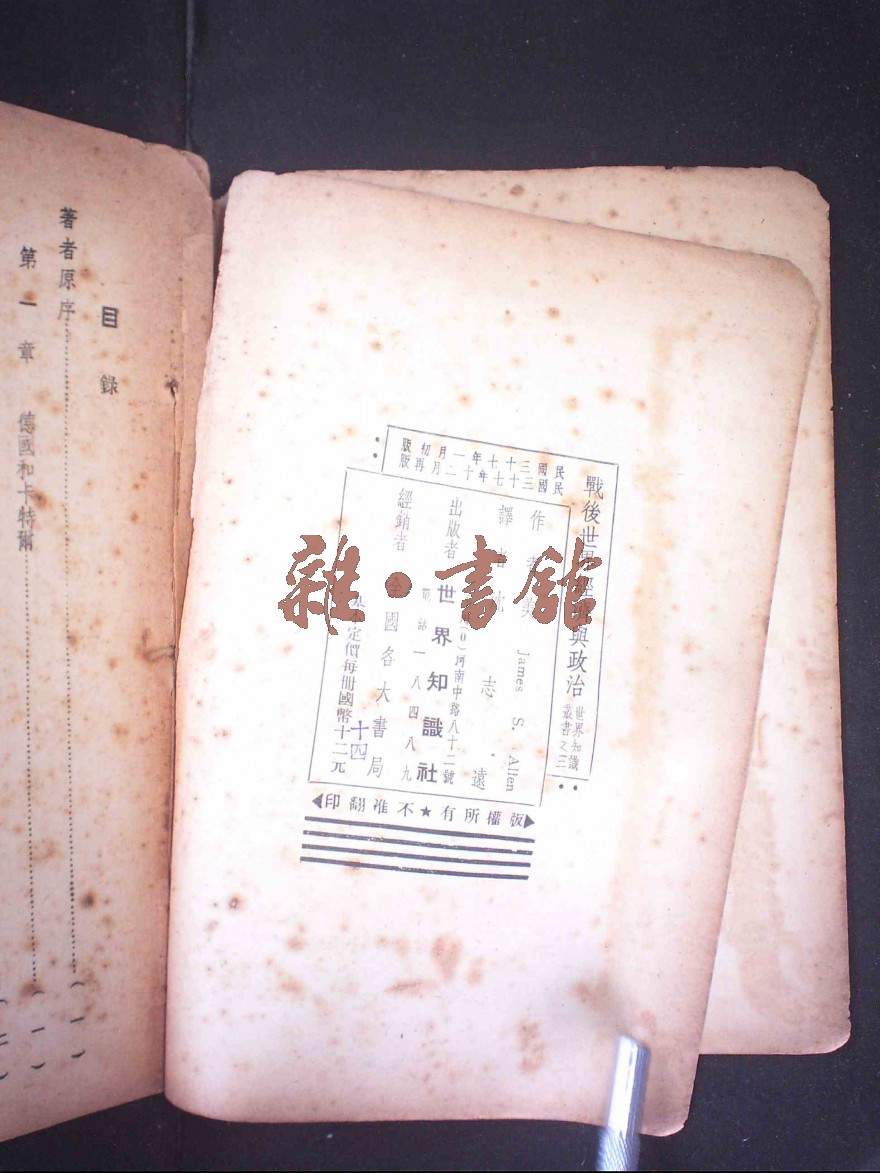 戰後世界經濟與政治
世界知識
叢書之三
民國三十七年一月初版
民國三十七年十二月再版
作者 美 James S. Allen
譯者 沈志遠
出版者 世界知識社
(0)河南中路八十二號
電話一八四八九
經銷者 全國各大書局
基本定價每冊國幣十二元
十四
版權所有★不准翻印
雜·書館
目錄
著者原序
(一)
第一章 德國和卡特爾
(一)